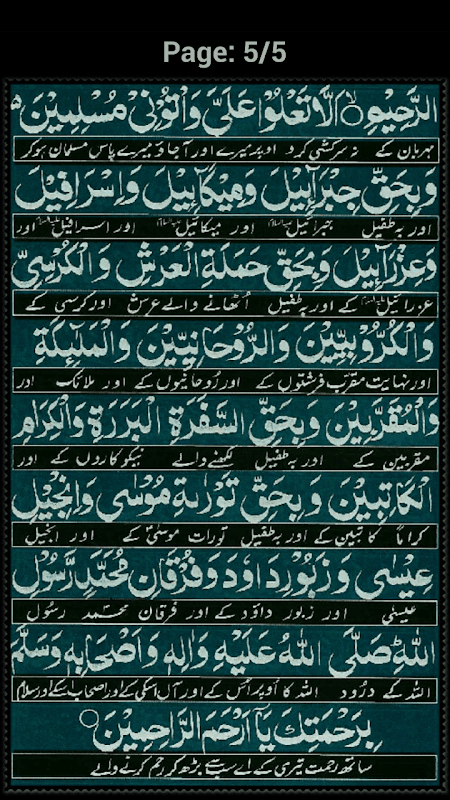 Page: 5/5
الرَّحِيْمِ ۙ اَلَّا تَعْلُوْا عَلَيَّ وَأْتُوْنِيْ مُسْلِمِيْنَ
مہربان کے نہ سرکشی کرو اوپر میرے اور آجاؤ میرے پاس مسلمان ہوکر
وَبِحَقِّ جِبْرَآئِيْلَ وَمِيْكَآئِيْلَ وَاِسْرَافِيْلَ
اور بہ طفیل جبرائیل اور میکائیل اور اسرافیل اور
وَعِزْرَآئِيْلَ وَبِحَقِّ حَمَلَةِ الْعَرْشِ وَالْكُرْسِيِّ
عزرائیل کے اور بہ طفیل اُٹھانے والے عرش اور کرسی کے
وَالْكُرُّوْبِيِّيْنَ وَالرُّوْحَانِيِّيْنَ وَالْمَلٰٓئِكَةِ
اور نہایت مقرب فرشتوں کے اور رُوحانیوں کے اور ملائک اور
وَالْمُقَرَّبِيْنَ وَبِحَقِّ السَّفَرَةِ الْبَرَرَةِ وَالْكِرَامِ
مقربین کے اور بہ طفیل لکھنے والے نیکوکاروں کے اور
الْكَاتِبِيْنَ وَبِحَقِّ تَوْرٰىةِ مُوْسٰى وَاِنْجِيْلِ
کراماً کاتبین کے اور بہ طفیل تورات موسیٰ کے اور انجیل
عِيْسٰى وَزَبُوْرِ دَاوٗدَ وَفُرْقَانِ مُحَمَّدٍ رَّسُوْلِ
عیسیٰ اور زبور داؤد کے اور فرقان محمد رسُول
اللّٰهِ صَلَّى اللّٰهُ عَلَيْهِ وَاٰلِهٖ وَاَصْحَابِهٖ وَسَلَّمَ
اللہ کے درُود اللہ کا اوپر اس کے اور آل اسکی کے اور اصحاب اسکے اور سلام
بِرَحْمَتِكَ يَآ اَرْحَمَ الرَّاحِمِيْنَ ○
ساتھ رحمت تیری کے اے سب سے بڑھ کر رحم کرنے والے